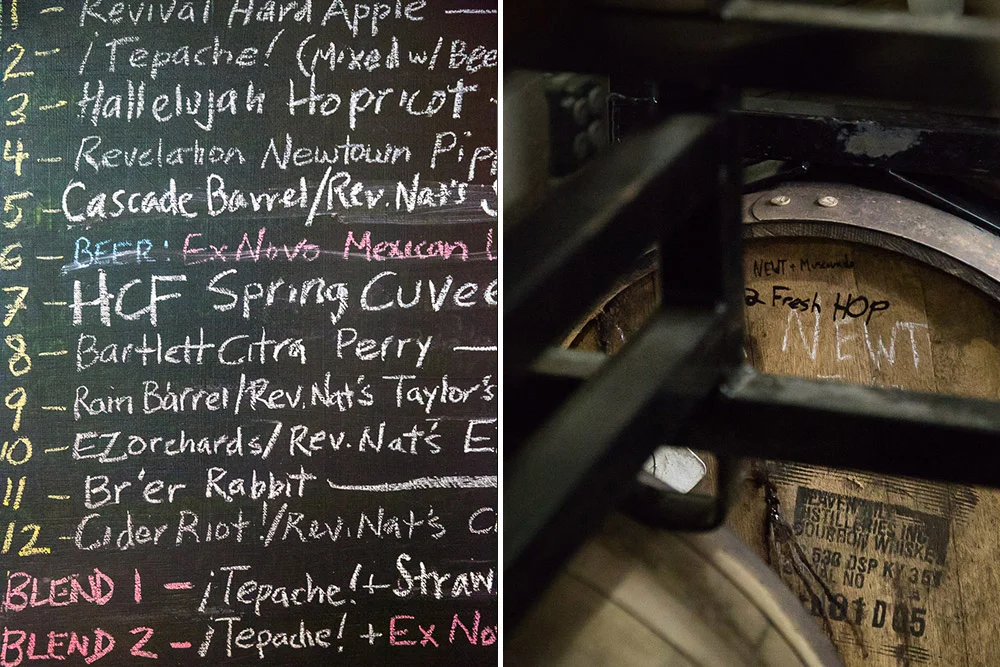 1 - Revival Hard Apple —
2 - ¡Tepache! (Mixed w/ Bee
3 - Hallelujah Hopricot -
4 - Revelation Newtown Pipp
5 - Cascade Barrel/Rev. Nat's S
6 - BEER: Ex Novo Mexican L
7 - HCF Spring Cuvee
8 - Bartlett Citra Perry —
9 - Rain Barrel/Rev. Nat's Taylor's
10 - EZ orchards/Rev. Nat's E
11 - Br'er Rabbit —
12 - Cider Riot!/Rev. Nat's C
BLEND 1 - ¡Tepache! + Straw
BLEND 2 - ¡Tepache! + Ex No
NEWT +
2 Fresh HOP
NEWT
DISTILLERIES INC
BOURBON WHISKE
530 DSP KY 35
AL NO
D05